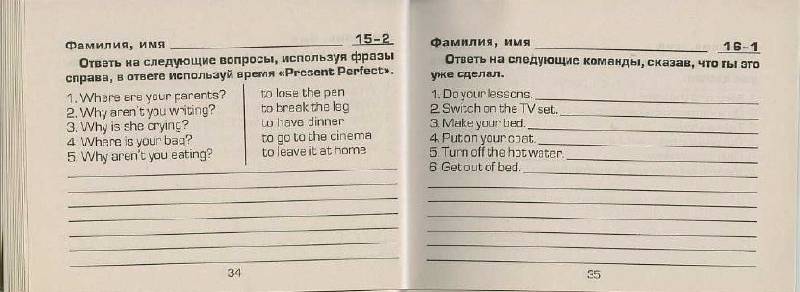 15-2
Фамилия, имя
Ответь на следующие вопросы, используя фразы
справа, в ответе используй время «Present Perfect».
1. Where are your parents? to lose the pen
2. Why aren't you writing? to break the leg
3. Why is she crying? to have dinner
4. Where is your bag? to go to the cinema
5. Why aren't you eating? to leave it at home
34
16-1
Фамилия, имя
Ответь на следующие команды, сказав, что ты это
уже сделал.
1. Do your lessons.
2. Switch on the TV set.
3. Make your bed.
4. Put on your coat.
5. Turn off the hot water.
6 Get out of bed.
35